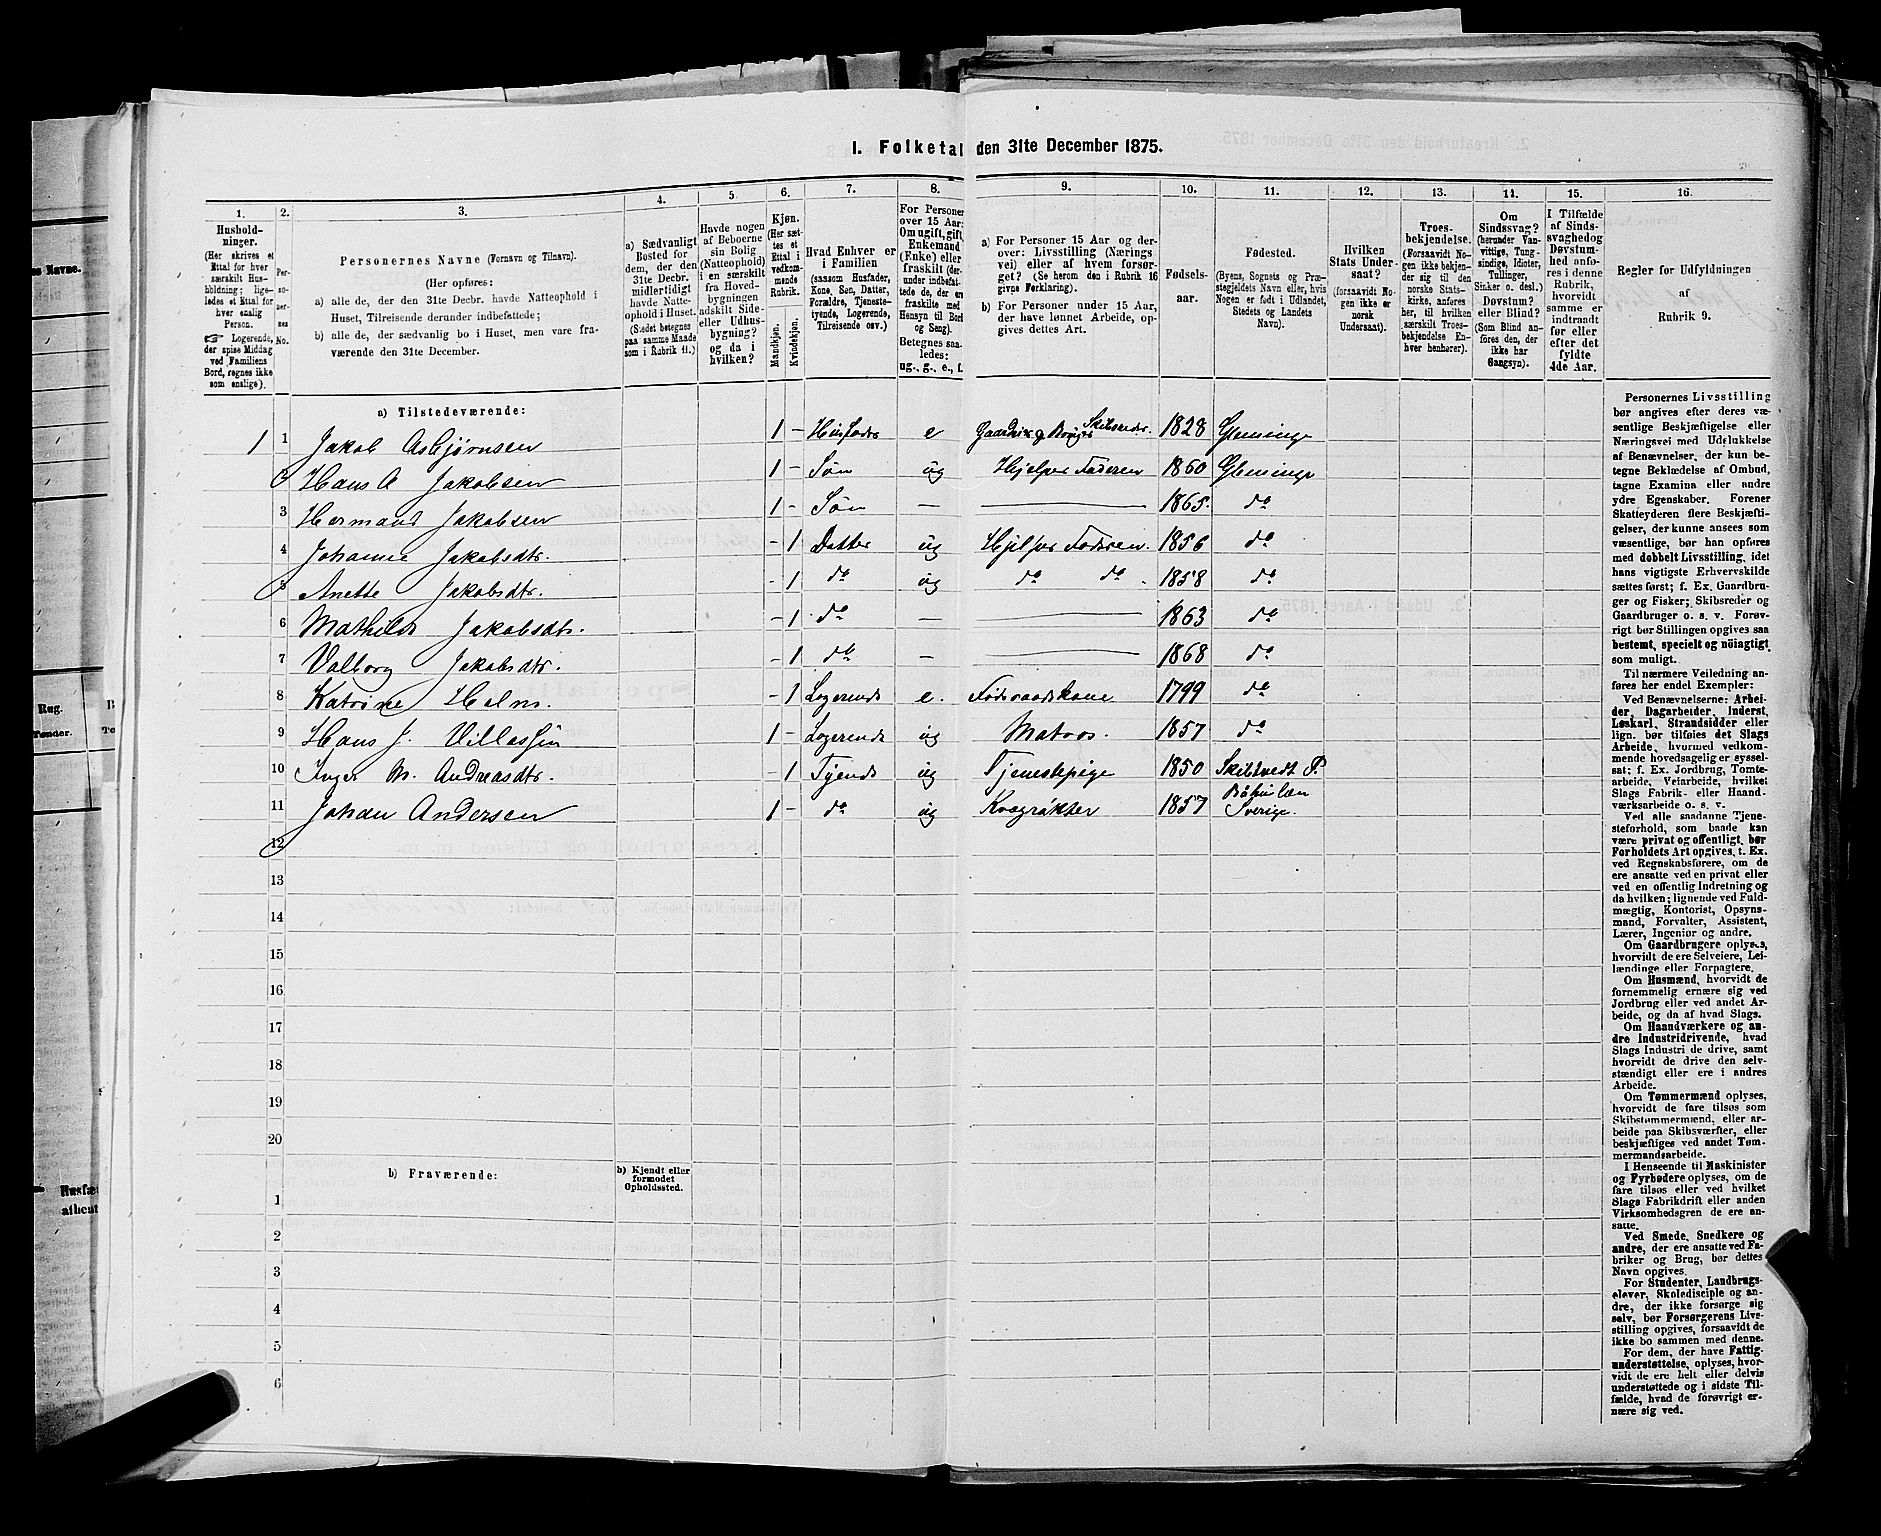 1. Folketal den 31te December 1875.
1. 2. 3. 4. 5. 6. 7. 8. 9. 10. 11. 12. 13. 14. 15. 16.
Husholdninger.
(Her skrives et
Ettal for hver
særskilt Husholdning; ligeledes et Ettal for
hver enslig
Person.
☞ Logerende,
der spise Middag
ved Familiens
Bord, regnes ikke
som enslige).
Personernes No.
Personernes Navne (Fornavn og Tilnavn).
(Her opføres:
a) alle de, der den 31te Decbr. havde Natteophold i
Huset, Tilreisende derunder indbefattede;
b) alle de, der sædvanlig bo i Huset, men vare fraværende den 31te December.
a) Sædvanligt
Bosted for
dem, der den
31te Decbr.
midlertidigt
havde Natteophold i Huset.
(Stedet betegnes
paa samme Maade
som i Rubrik 11.)
Havde nogen
af Beboerne
sin Bolig
(Natteophold)
i en særskilt
fra Hovedbygningen
adskilt Side-
eller Udhusbygning?
og da i
hvilken?
Kjøn.
(Her sættes et
Ettal i
vedkommende
Rubrik.
Mandkjøn.
Kvindekjøn.
Hvad Enhver er
i Familien
(saasom Husfader,
Kone, Søn, Datter,
Forældre, Tjenestetyende, Logerende,
Tilreisende osv.)
For Personer
over 15 Aar:
Om ugift, gift,
Enkemand
(Enke) eller
fraskilt (derunder indbefattede de, der ere
fraskilte med
Hensyn til Bord
og Seng).
Betegnes saaledes:
ug., g., e., f.
a) For Personer 15 Aar og derover: Livsstilling (Næringsvei) eller af hvem forsørget? (Se herom den i Rubrik 16
givne Forklaring).
b) For Personer under 15 Aar,
der have lønnet Arbeide, opgives dettes Art.
Fødselsaar.
Fødested.
(Byens, Sognets og Præstegjeldets Navn eller, hvis
Nogen er født i Udlandet,
Stedets og Landets
Navn).
Hvilken
Stats Undersaat?
(forsaavidt Nogen ikke er
norsk
Undersaat).
Troesbekjendelse.
(Forsaavidt Nogen ikke bekjender sig til den
norske Statskirke, anføres
her, til hvilken
særskilt Troesbekjendelse Enhver henhører).
Om
Sindssvag?
(herunder Vanvittige, Tungsindige, Idioter,
Tullinger,
Sinker o. desl.)
Døvstum?
eller Blind?
(Som Blind anføres den, der
ikke har
Gangsyn).
I Tilfælde
af Sindssvaghed og
Døvstumhed anføres i denne
Rubrik,
hvorvidt
samme er
indtraadt
før eller
efter det
fyldte
4de Aar.
Regler for Udfyldningen
af
Rubrik 9.
a) Tilstedeværende:
1 1 Jakob Asbjørnsen 1 - Husfader e Gaardeier g Bruger Skibsreder. 1828 Gleminge
2 Hans A Jakobsen 1 - Søn ug Hjelper Faderen 1860 Gleminge
3 Hermand Jakobsen 1 - Søn — — 1865. do
4 Johanne Jakobsdtr. - 1 Datter ug Hjelper Faderen. 1856 do
5 Anette Jakobsdtr. - 1 do ug do do 1858 do
6 Mathilde Jakobsdtr. - 1 do — — 1863 do
7 Valborg Jakobsdtr. - 1 do — — 1868 do
8 Katrine Holm. - 1 Logerende e. Føderaadskone 1799 do
9 Hans J. 1 - Logerende ug Matros. 1857 do
10 Inger M. Andreasdtr. - 1 Tyende ug Tjenestepige 1850 Skibtvedt P.
11 Johan Andersen 1 - do ug Kvægrøkter 1857 Båhuslæn Sverige.
12
13
14
15
16
17
18
19
20
b) Fraværende:
b) Kjendt eller
formodet
Opholdssted.
1
2
3
4
5
6
Personernes Livsstilling
bør angives efter deres væsentlige Beskjæftigelse eller
Næringsvei med Udelukkelse
af Benævnelser, der kun betegne Beklædelse af Ombud,
tagne Examina eller andre
ydre Egenskaber. Forener
Skatteyderen flere Beskjæftigelser, der kunne ansees som
væsentlige, bør han opføres
med dobbelt Livsstilling, idet
hans vigtigste Erhvervskilde
sættes først; f. Ex. Gaardbruger og Fisker; Skibsreder og
Gaardbruger o. s. v. Forøvrigt bør Stillingen opgives saa
bestemt, specielt og nöiagtigt
som muligt.
Til nærmere Veiledning anføres her endel Exempler:
Ved Benævnelserne: Arbeider, Dagarbeider, Inderst,
Løskarl, Strandsidder eller
lign. bør tilføies det Slags
Arbeide, hvormed vedkommende hovedsagelig er sysselsat; f. Ex. Jordbrug, Tomtearbeide, Veiarbeide, hvilket
Slags Fabrik- eller Haandværksarbeide o. s. v.
Ved alle saadanne Tjenesteforhold, som baade kan
være privat og offentligt, bør
Forholdets Art opgives, t. Ex.
ved Regnskabsførere, om de
ere ansatte ved en privat eller
ved en offentlig Indretning og
da hvilken; lignende ved Fuldmægtig, Kontorist, Opsynsmand, Forvalter, Assistent,
Lærer, Ingeniør og andre.
Om Gaardbrugere oplyses,
hvorvidt de ere Selveiere, Leilændinge eller Forpagtere.
Om Husmænd, hvorvidt de
fornemmelig ernære sig ved
Jordbrug eller ved andet Arbeide, og da af hvad Slags.
Om Haandværkere og andre Industridrivende, hvad
Slags Industri de drive, samt
hvorvidt de drive den selvstændigt eller ere i andres
Arbeide.
Om Tømmermænd oplyses,
hvorvidt de fare tilsøs som
Skibstømmermænd, eller arbeide paa Skibsværfter, eller
beskjæftiges ved andet Tømmermandsarbeide.
I Henseende til Maskinister
og Fyrbødere oplyses, om de
fare tilsøs eller ved hvilket
Slags Fabrikdrift eller anden
Virksomhedsgren de ere ansatte.
Ved Smede, Snedkere og
andre, der ere ansatte ved Fabriker og Brug, bør dettes
Navn opgives.
For Studenter, Landbrugselever, Skoledisciple og andre, der ikke forsørge sig
selv, bør Forsørgerens Livsstilling opgives, forsaavidt de
ikke bo sammen med denne.
For dem, der have Fattigunderstøttelse, oplyses, hvorvidt de ere helt eller delvis
understøttede og i sidste Tilfælde, hvad de forøvrigt ernære sig ved.